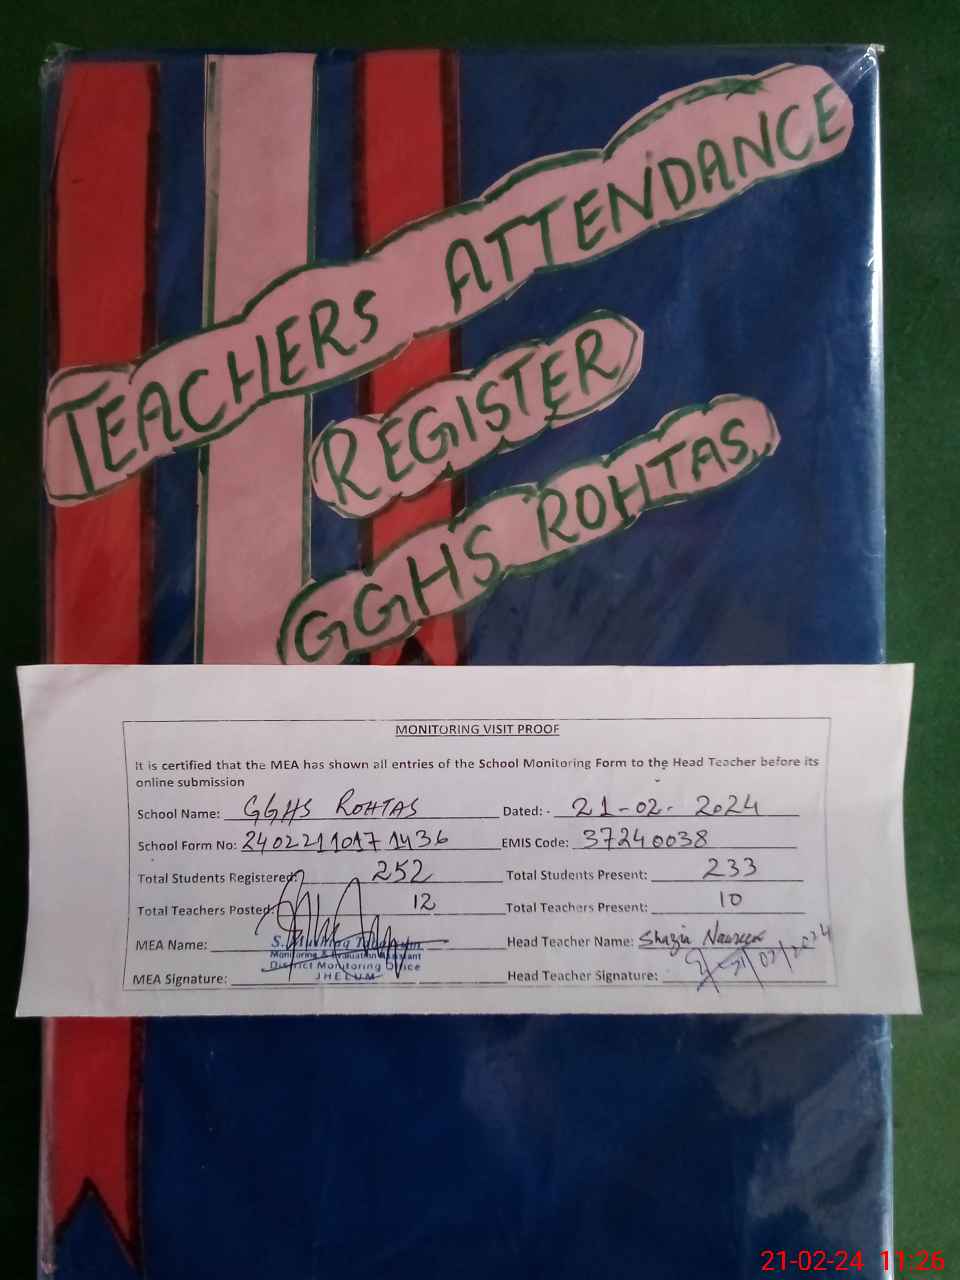 TEACHERS ATTENDANCE
REGISTER
GGHS ROHTAS
MONITORING VISIT PROOF
It is certified that the MEA has shown all entries of the School Monitoring Form to the Head Teacher before its
online submission
School Name: GGHS ROHTAS Dated: - 21-02-2024
School Form No: EMIS Code: 37240038
Total Students Registered: 252 Total Students Present: 233
Total Teachers Posted: 12 Total Teachers Present: 10
MEA Name: Head Teacher Name: Shazia
Monitoring & Evaluation Assistant
District Monitoring Office
JHELUM
MEA Signature: Head Teacher Signature: 21/02/2024
21-02-24 11:26